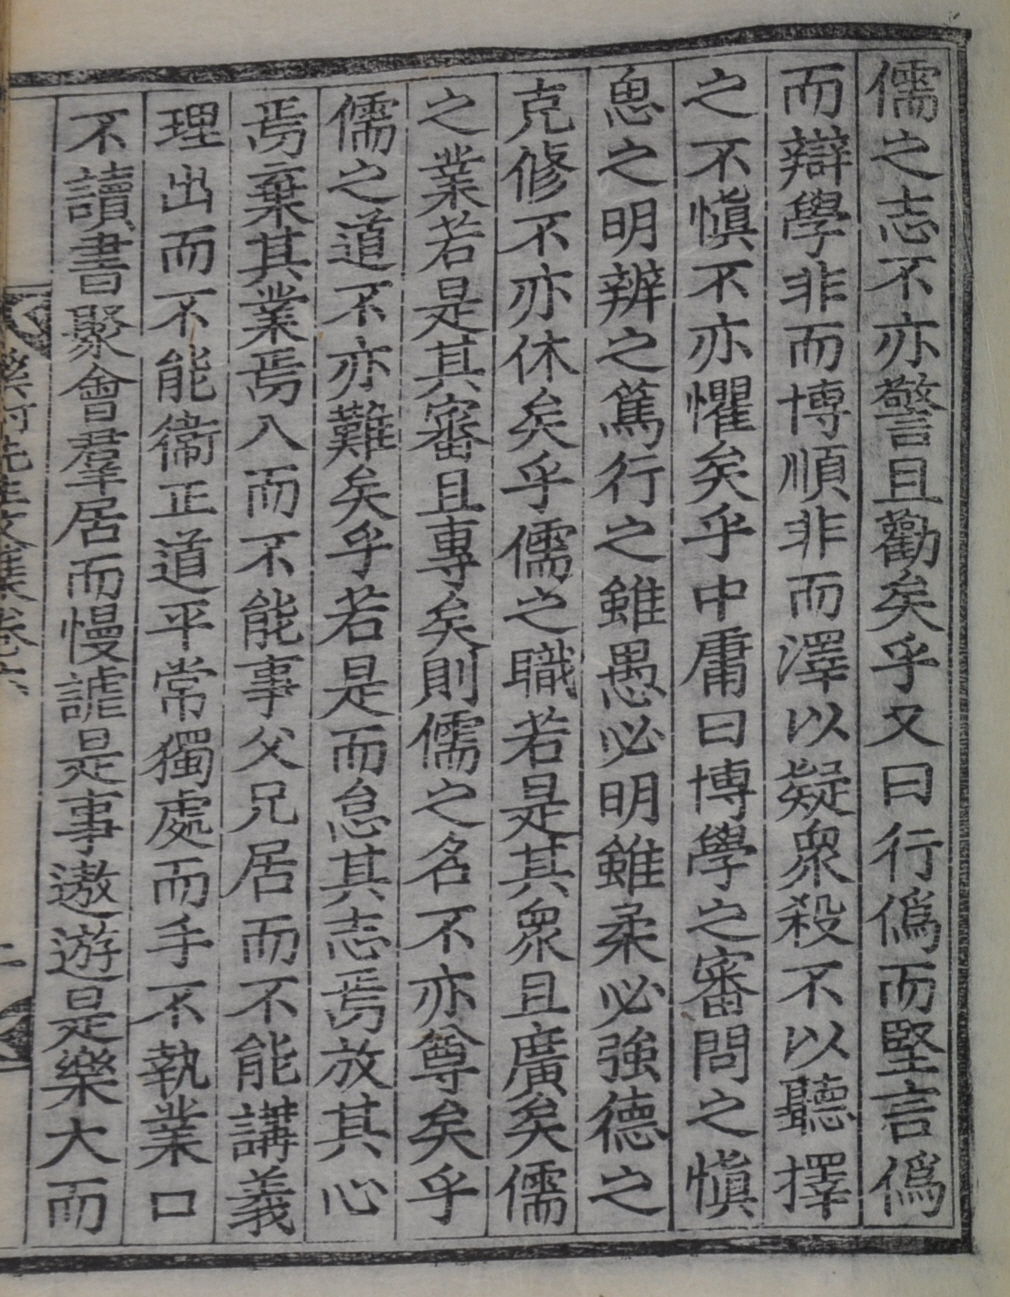 儒之志不亦警且勸矣乎又曰行僞而堅言僞
而辯學非而博順非而澤以疑衆殺不以聽擇
之不愼不亦懼矣乎中庸曰博學之審問之愼
思之明辨之篤行之雖愚必明雖柔必強德之
克修不亦休矣乎儒之職若是其衆且廣矣儒
之業若是其審且專矣則儒之名不亦尊矣乎
儒之道不亦難矣乎若是而怠其志焉放其心
焉棄其業焉入而不能事父兄居而不能講義
理出而不能衞正道平常獨處而手不執業口
不讀書聚會羣居而慢謔是事遨遊是樂大而
先生文集卷六
二